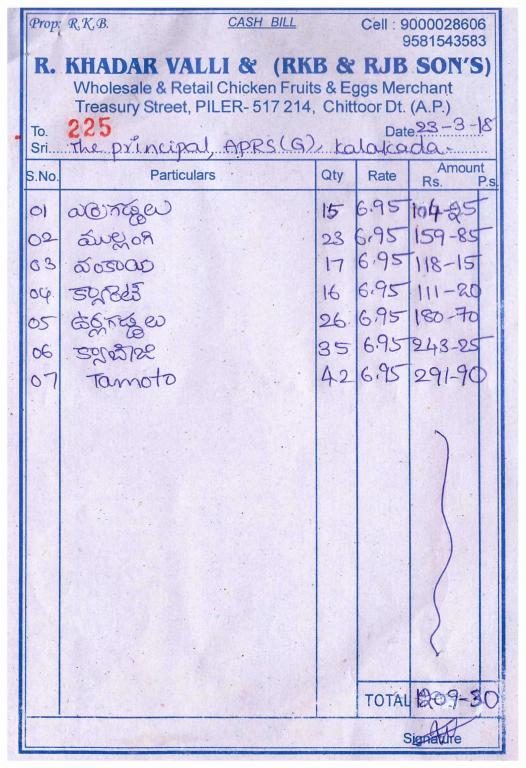 Prop: R.K.B. CASH BILL Cell : 9000028606
9581543583
R. KHADAR VALLI & (RKB & RJB SON'S)
Wholesale & Retail Chicken Fruits & Eggs Merchant
Treasury Street, PILER- 517 214, Chittoor Dt. (A.P.)
To. 225 Date 23-3-18
Sri The principal, APRS(G), Kalakada.
S.No. Particulars Qty Rate Amount
Rs. P.s.
01 ఎర్రగడ్డలు 15 6.95 104-25
02 ముల్లంగి 23 6.95 159-85
03 వంకాయ 17 6.95 118-15
04 క్యారెట్ 16 6.95 111-20
05 ఉర్లగడ్డలు 26 6.95 180-70
06 క్యాబేజి 35 6.95 243-25
07 Tamoto 42 6.95 291-90
TOTAL 1209-30
Signature